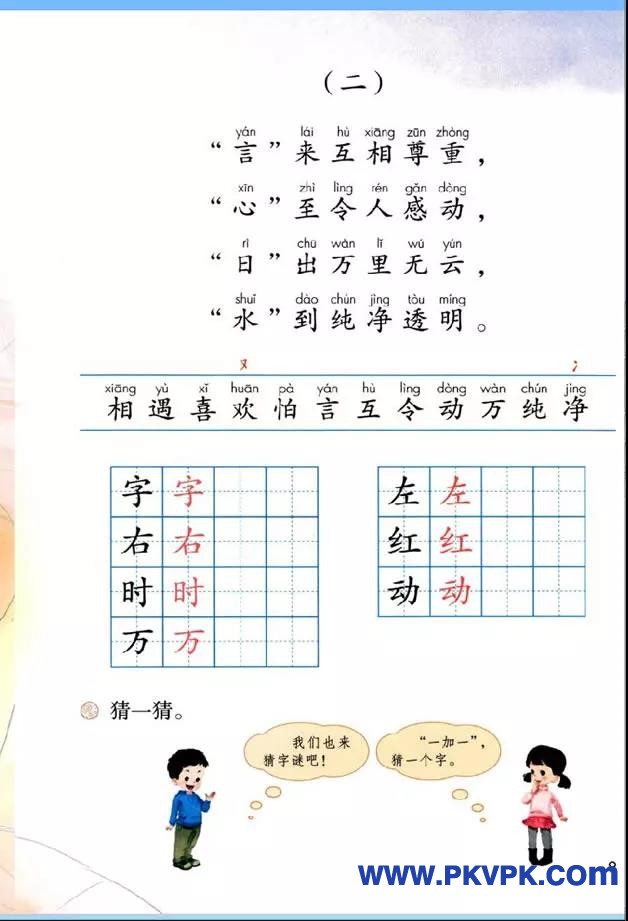 （二）
yán lái hù xiāng zūn zhòng
“言”来互相尊重，
xīn zhì lìng rén gǎn dòng
“心”至令人感动，
rì chū wàn lǐ wú yún
“日”出万里无云，
shuǐ dào chún jìng tòu míng
“水”到纯净透明。
又 冫
xiāng yù xǐ huān pà yán hù lìng dòng wàn chún jìng
相遇喜欢怕言互令动万纯净
字 字 左 左
右 右 红 红
时 时 动 动
万 万
猜一猜。
我们也来
猜字谜吧！
“一加一”，
猜一个字。
www.PKVPK.com